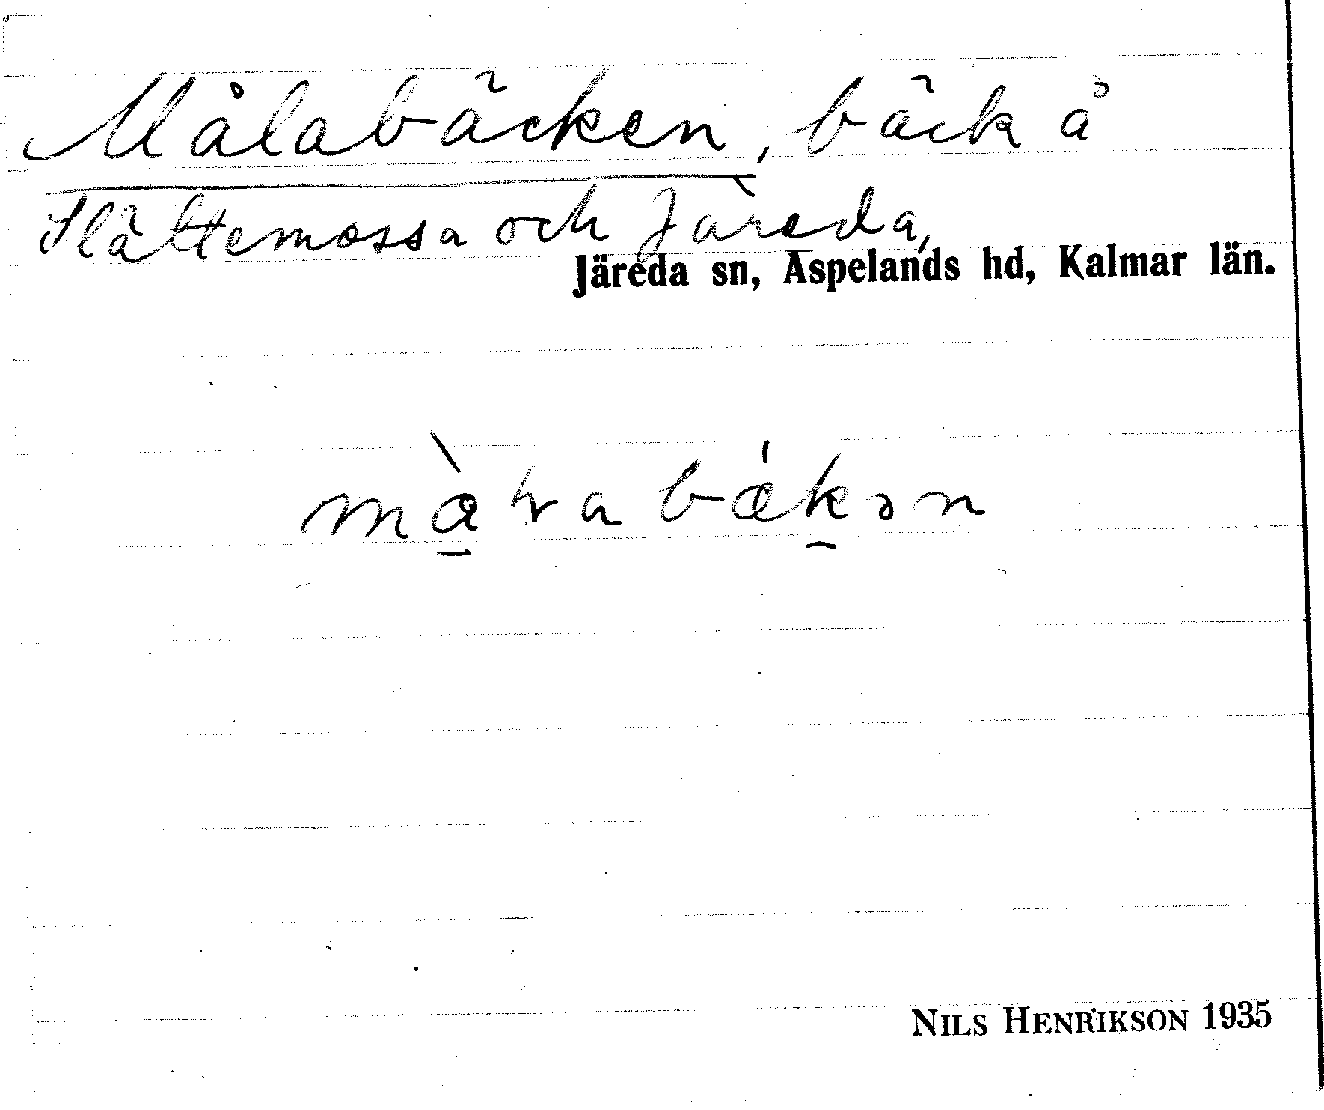 Målabäcken, bäck å
Slättemossa och Järeda,
Järeda sn, Aspelands hd, Kalmar län.
NILS HENRIKSON 1935